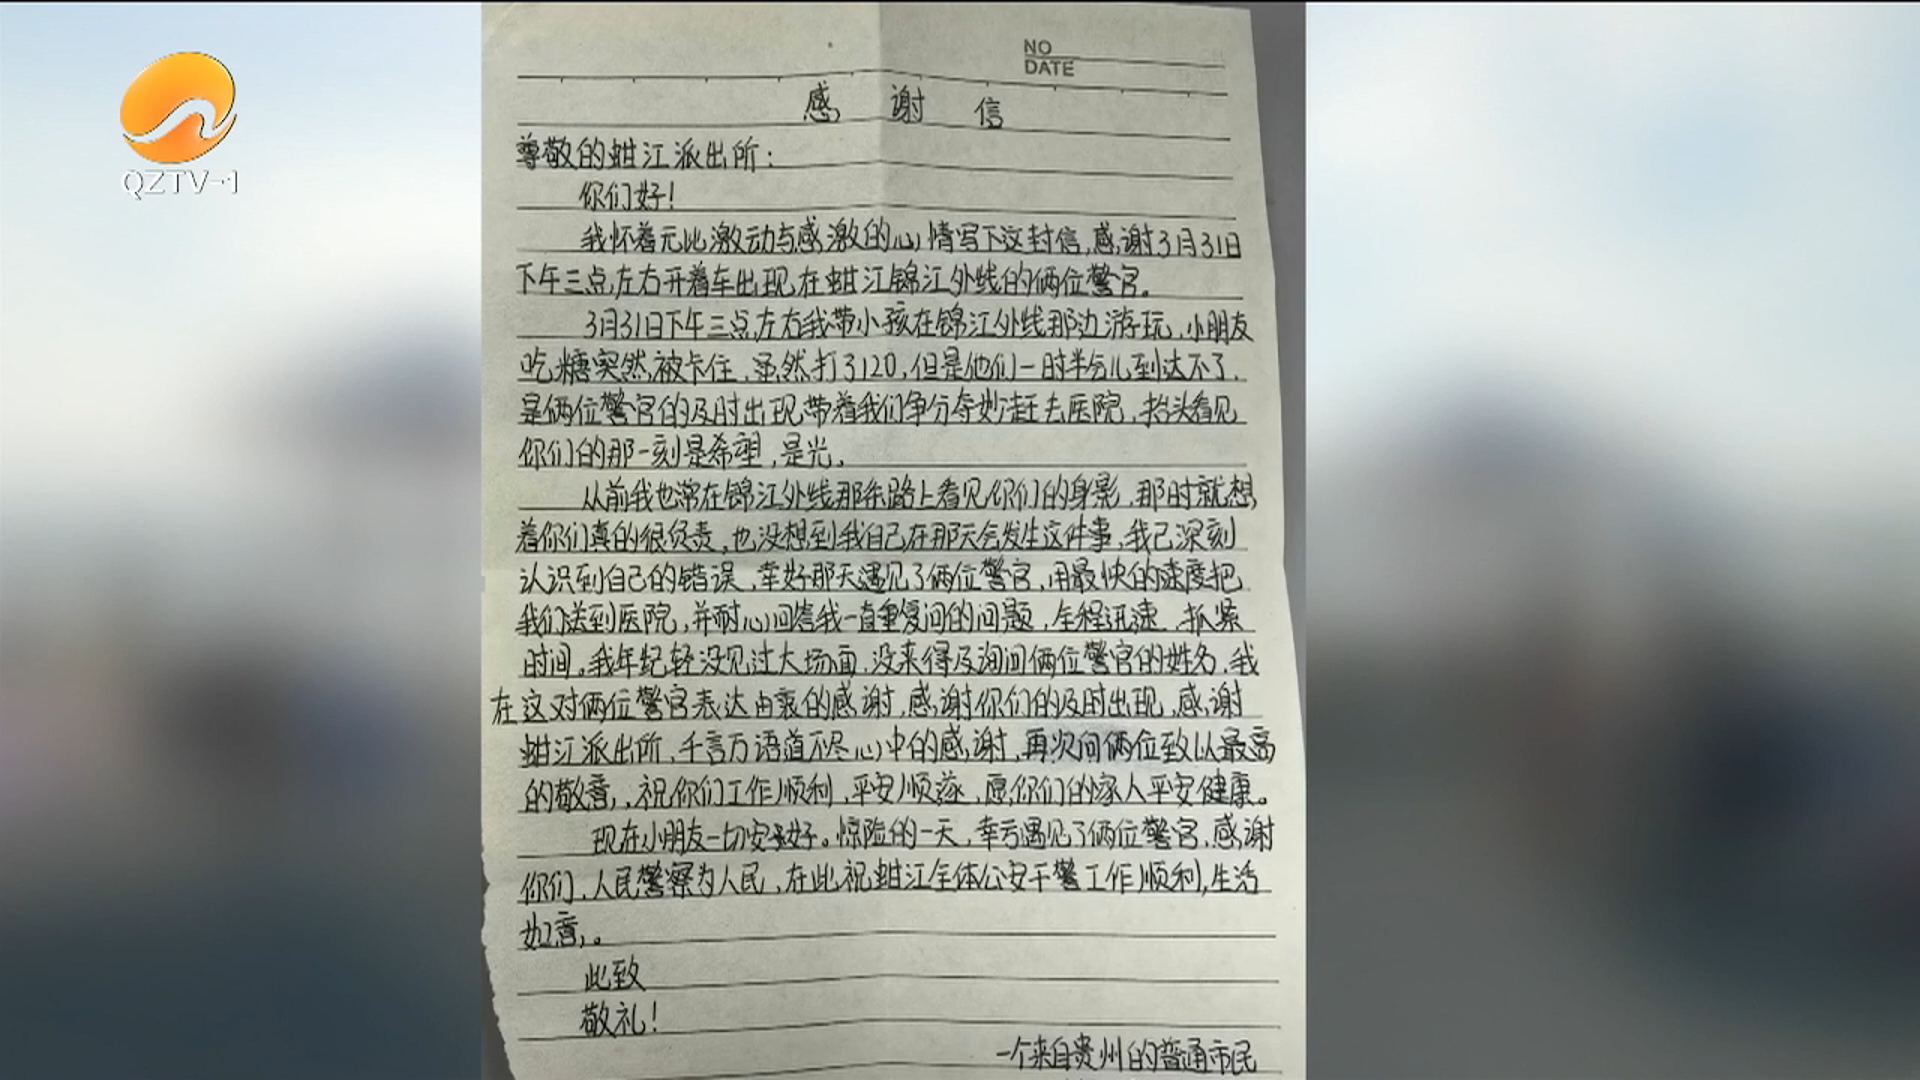 QZTV-1
NO
DATE
感谢信
尊敬的蚶江派出所：
你们好！
我怀着无比激动与感激的心情写下这封信，感谢3月31日
下午三点左右开着车出现在蚶江锦江外线的俩位警官。
3月31日下午三点左右我带小孩在锦江外线那边游玩，小朋友
吃糖突然被卡住，虽然打了120，但是他们一时半分儿到达不了，
是俩位警官的及时出现带着我们争分夺妙赶去医院，抬头看见
你们的那一刻是希望，是光，
从前我也常在锦江外线那条路上看见你们的身影，那时就想
着你们真的很负责，也没想到我自己在那天会发生这件事，我已深刻
认识到自己的错误，幸好那天遇见了俩位警官，用最快的速度把
我们送到医院，并耐心回答我一直重复问的问题，全程迅速，抓紧
时间。我年纪轻没见过大场面，没来得及询问俩位警官的姓名，我
在这对俩位警官表达由衷的感谢，感谢你们的及时出现，感谢
蚶江派出所，千言万语道不尽心中的感谢，再次向俩位致以最高
的敬意，祝你们工作顺利，平安顺遂，愿你们的家人平安健康。
现在小朋友一切安好。惊险的一天，幸亏遇见了俩位警官，感谢
你们，人民警察为人民，在此祝蚶江全体公安干警工作顺利，生活
如意。
此致
敬礼！
一个来自贵州的普通市民